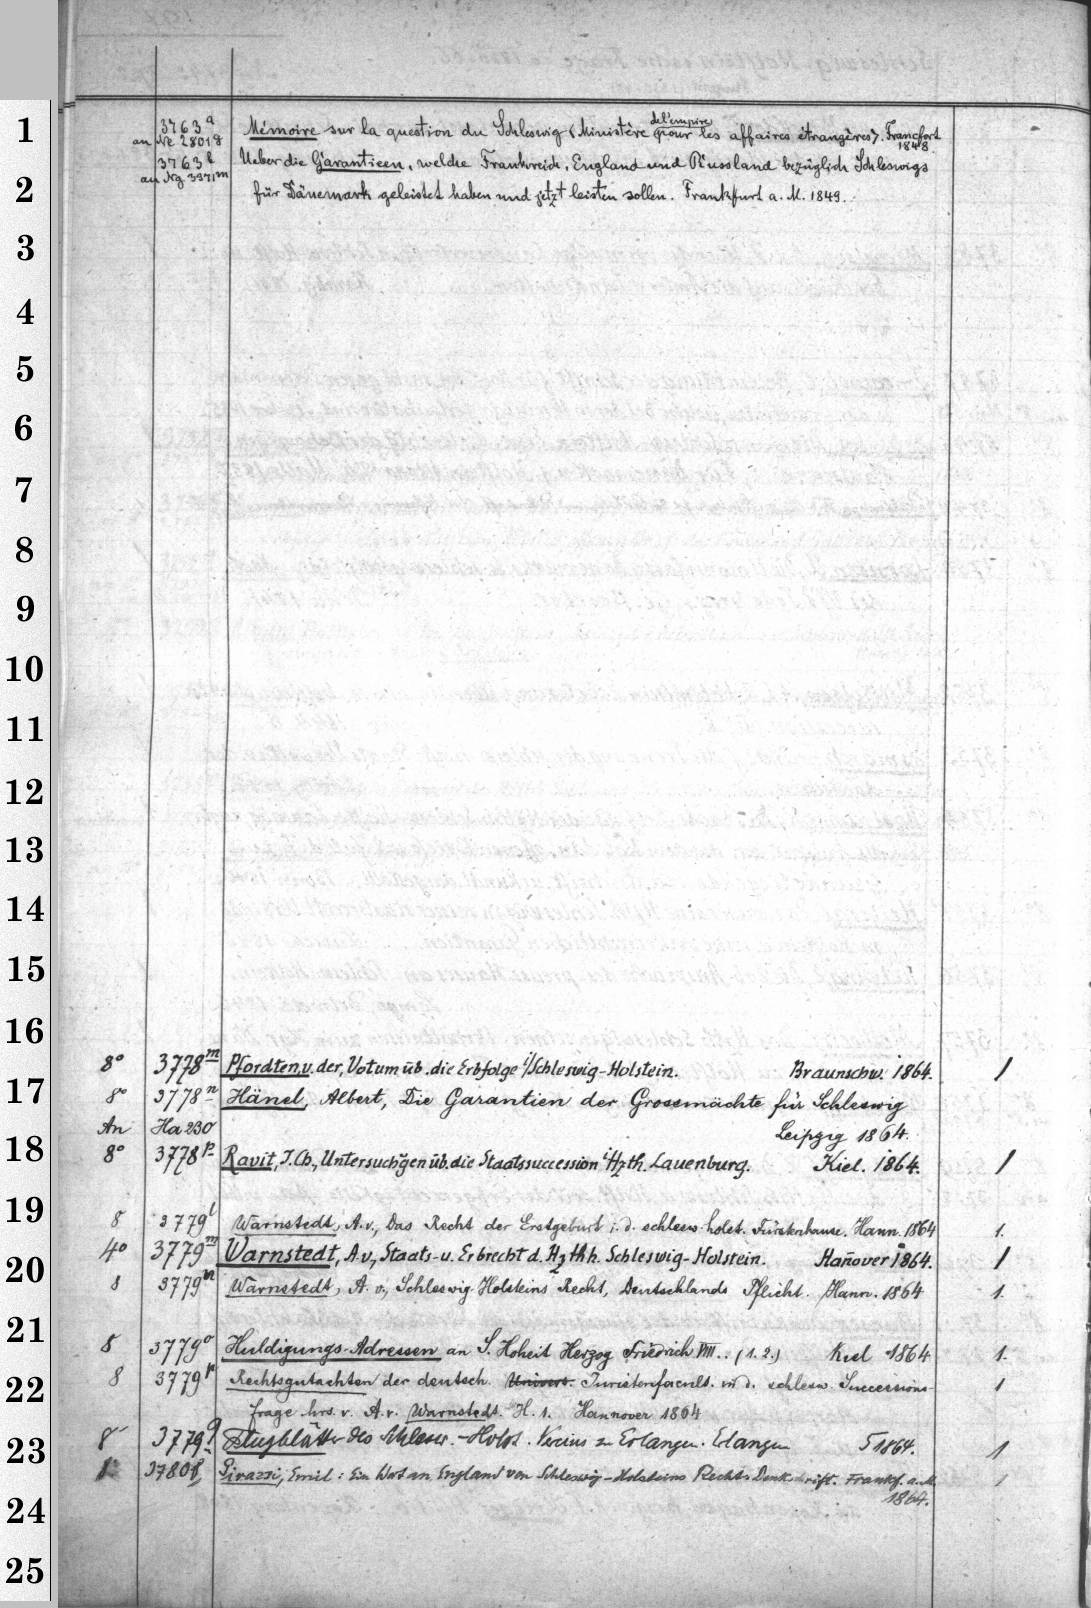 1
3763a Mémoire sur la question du Schleswig (Ministère de l'empire pour les affaires étrangères). Francfort
an Ne 2801g 1848
3763b Ueber die Garantieen, welche Frankreich, England und Russland bezüglich Schleswigs
an Ng 3371m
2 für Dänemark geleistet haben und jetzt leisten sollen. Frankfurt a. M. 1849.
3
4
5
6
7
8
9
10
11
12
13
14
15
16
8° 3778m Pfordten, v. der, Votum üb. die Erbfolge i/Schleswig-Holstein. Braunschw. 1864. 1
17 8° 3778n Hänel, Albert, Die Garantien der Grossmächte für Schleswig
An Ha 230 Leipzig 1864.
18 8° 3778p Ravit, J. Ch., Untersuchgen üb. die Staatssuccession i Hzth. Lauenburg. Kiel. 1864. 1
19 8 3779l Warnstedt, A. v., Das Recht der Erstgeburt i. d. schlesw. holst. Fürstenhause. Hann. 1864 1.
4° 3779m Warnstedt, A. v., Staats- u. Erbrecht d. Hzthh. Schleswig-Holstein. Hañover 1864. 1
20 8 3779n Warnstedt, A. v., Schleswig Holsteins Recht, Deutschlands Pflicht. Hann. 1864 1.
21 8 3779o Huldigungs-Adressen an S. Hoheit Herzog Friedrich VIII.. (1. 2.) Kiel 1864 1.
22 8 3779p Rechtsgutachten der deutsch. Univers. Juristenfacult. in d. schlesw. Successions- 1
frage hrs. v. A. v. Warnstedt. H. 1. Hannover 1864
23 8° 3779q Flugblätter des Schlesw.-Holst. Vereins zu Erlangen. Erlangen 1864. 1
3780b Pirazzi, Emil: Ein Wort an England von Schleswig-Holsteins Recht. Denkschrift. Frankf. a. M. 1
24 1864.
25